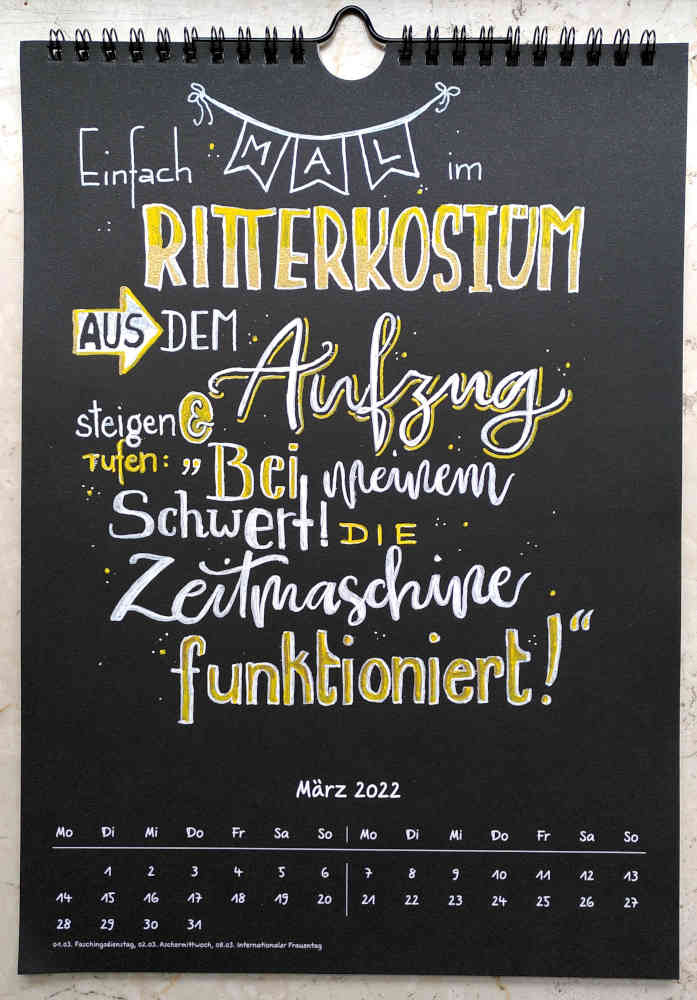 Einfach MAL im
RITTERKOSTÜM
AUS DEM Aufzug
steigen &
rufen: „Bei meinem
Schwert! DIE
Zeitmaschine
funktioniert!“
März 2022
Mo Di Mi Do Fr Sa So | Mo Di Mi Do Fr Sa So
1 2 3 4 5 6 7 8 9 10 11 12 13
14 15 16 17 18 19 20 21 22 23 24 25 26 27
28 29 30 31
01.03. Faschingsdienstag, 02.03. Aschermittwoch, 08.03. Internationaler Frauentag